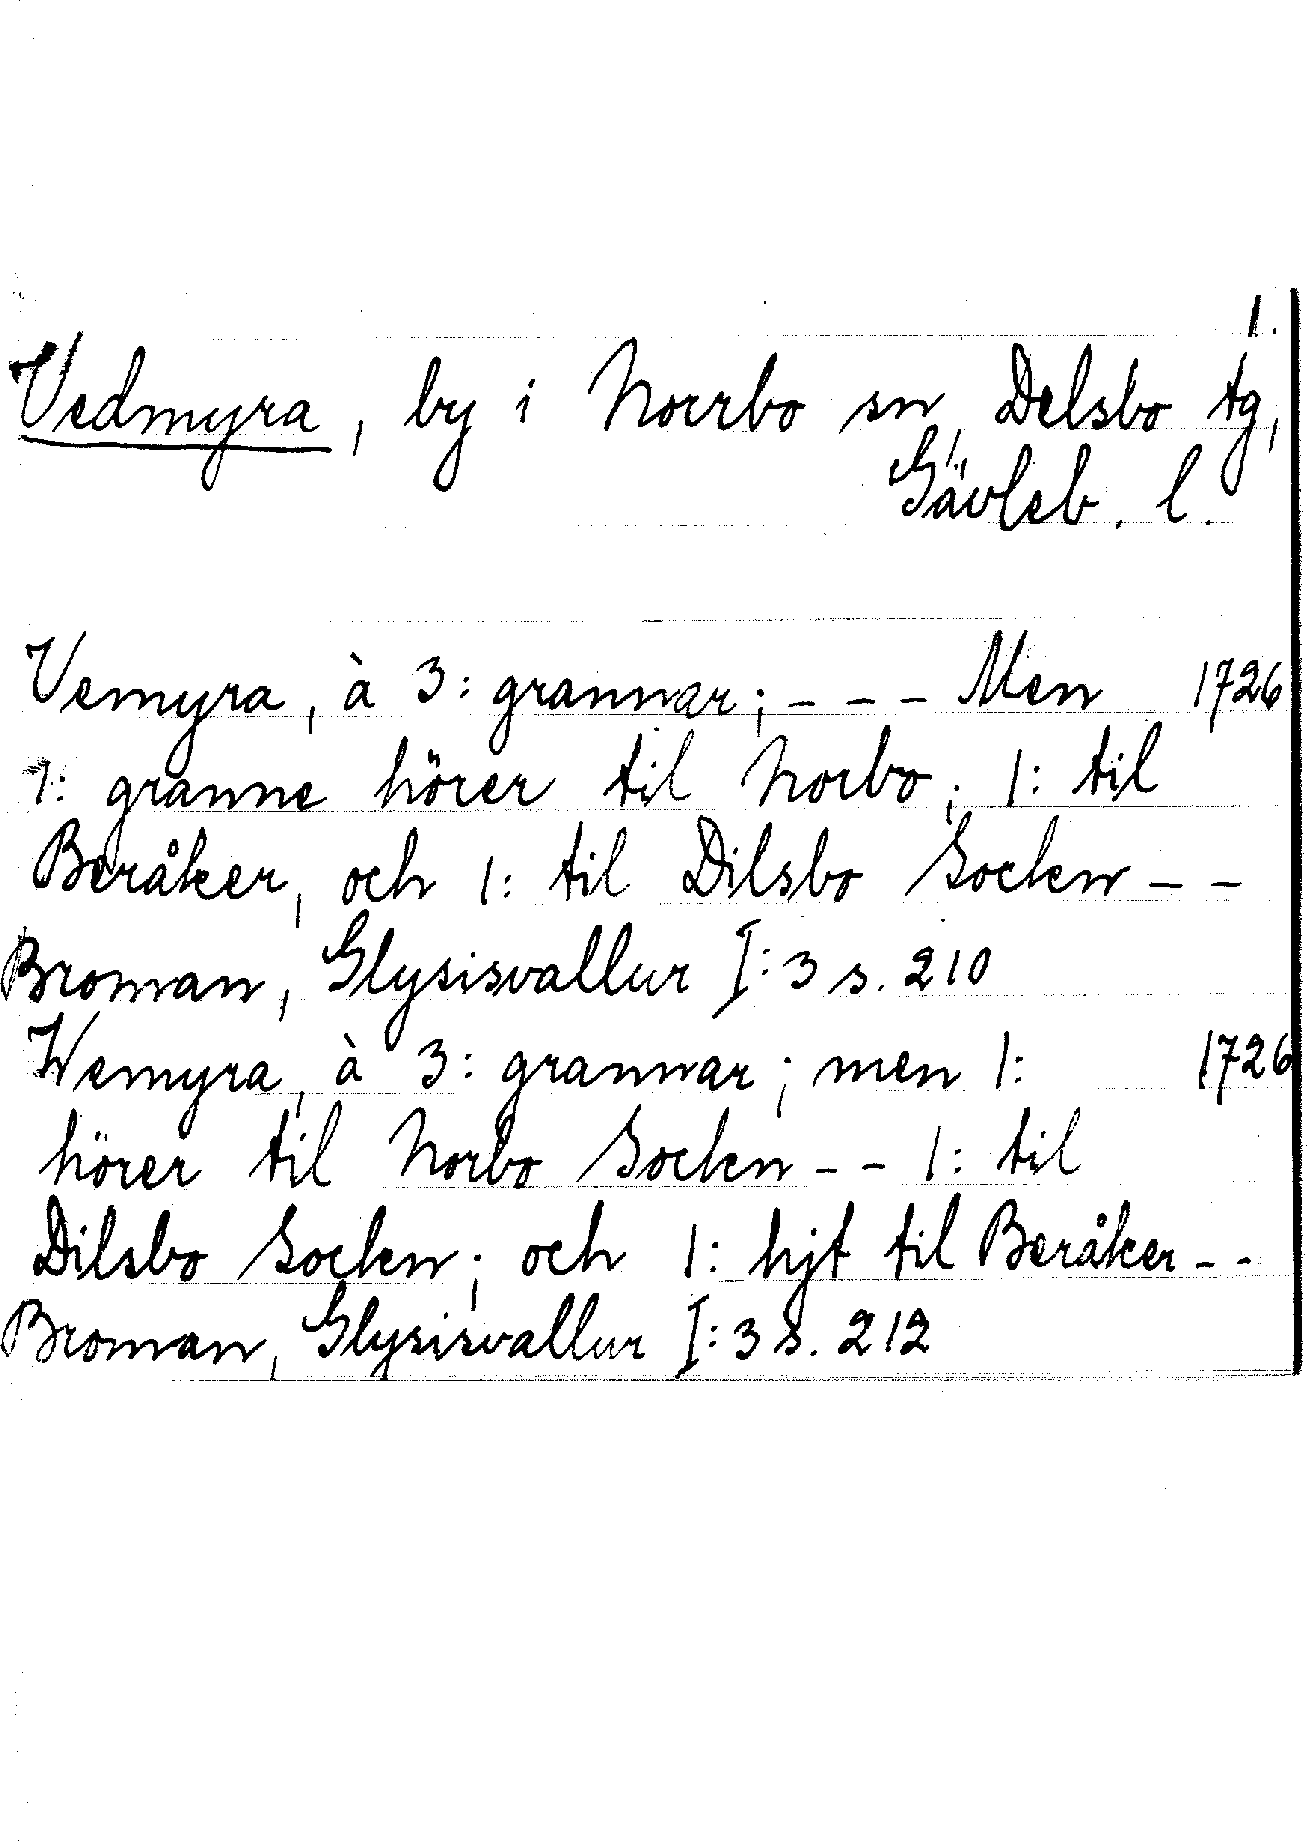 1.
Vedmyra, by i Norrbo sn, Delsbo tg,
Gävleb. l.
Vemyra, à 3: grannar; - - - Men 1726
1: granne hörer til Norbo; 1: til
Beråker, och 1: til Dilsbo Socken - -
Broman, Glysisvallur I:3 s. 210
Wemyra, à 3: grannar; men 1: 1726
hörer til Norbo Socken - - 1: til
Dilsbo Socken; och 1: hjt til Beråker - -
Broman, Glysisvallur I:3 s. 212